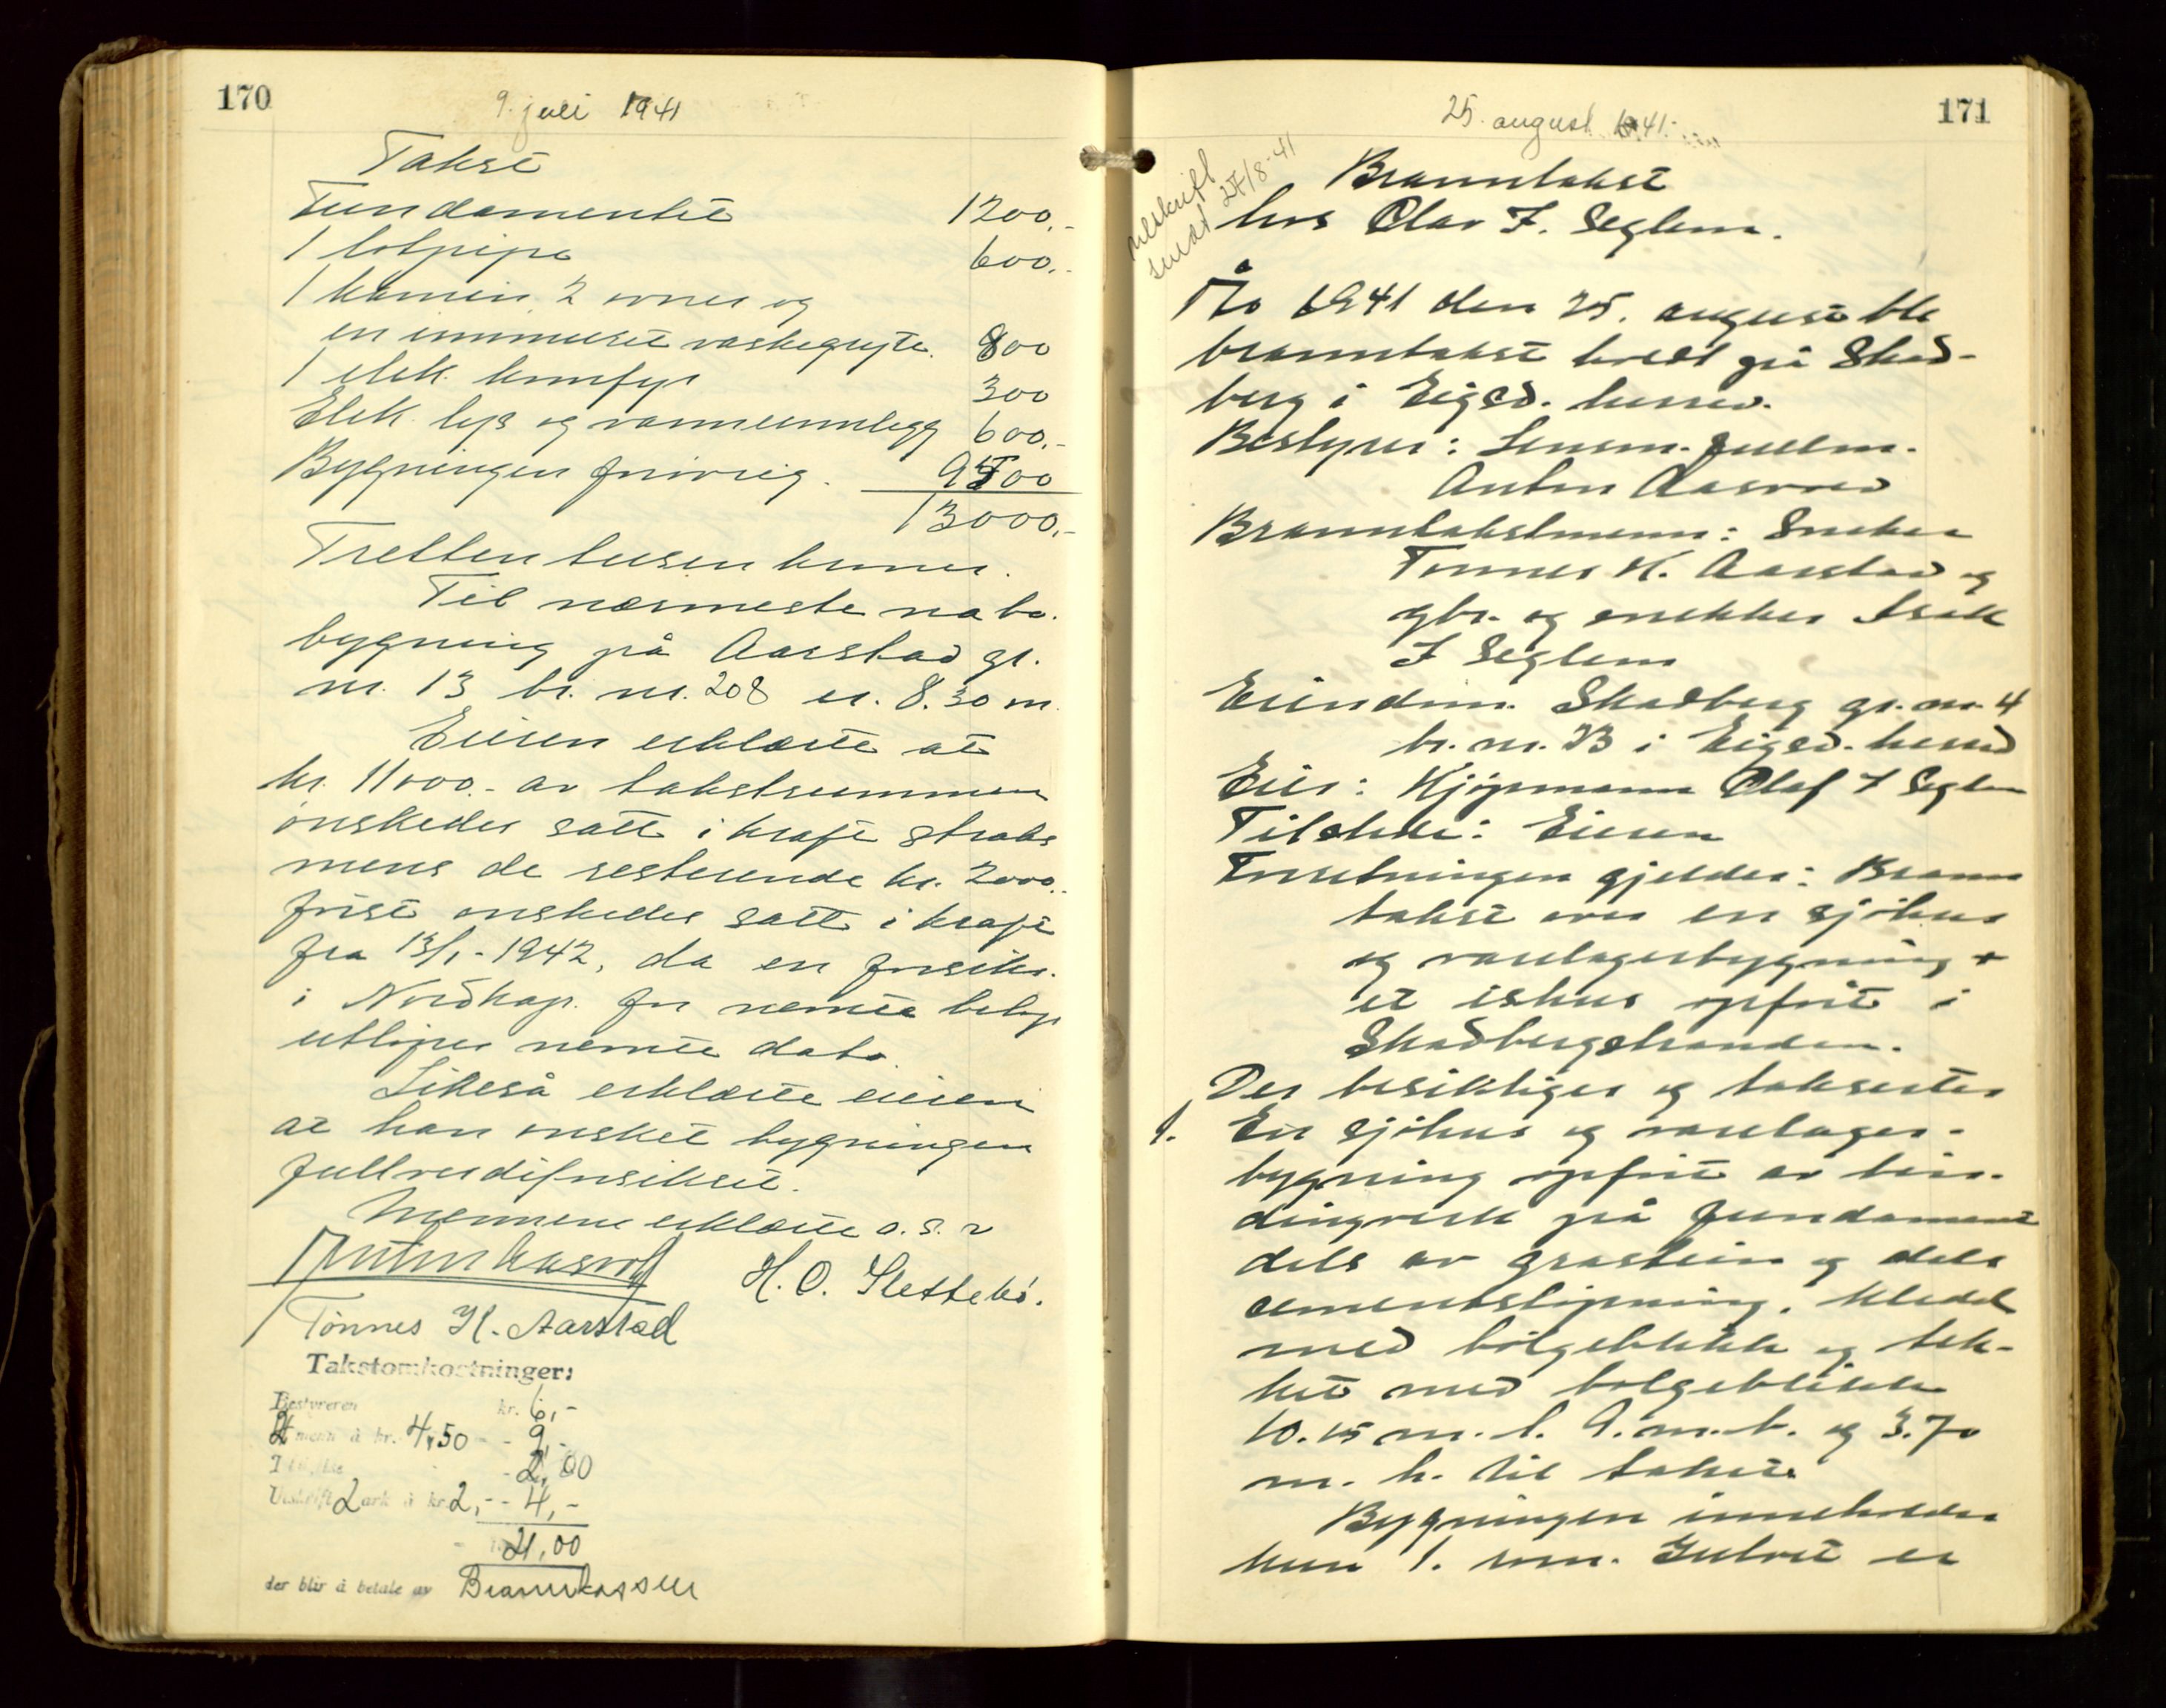 170
9. juli 1941
Takst
Fundamentet 1200.-
1 lotpipe 600.-
1 kamin 2 ovner og
en innmuret vaskegryte. 800
1 elek. komfyr 300
Elek. lys og varmeinnlegg 600.-
Bygningen forøvrig. 9500
13000.-
Tretten tusen kroner.
Til nærmeste nabo-
bygning på Aarstad gr.
nr. 13 br. nr. 208 er. 8.30 m.
Eieren erklærte at
kr. 11000.- av takstsummen
ønskedes satt i kraft straks
mens de resterende kr. 2000.-
først ønskedes satt i kraft
fra 13/1-1942, da en forsikr.
i Nordkap. for nemte beløp
utløper nemte dato
Likeså erklærte eieren
at han ønsket bygningen
fullverdiforsikret.
Mennene erklærte a. s. v
Anton Aasved
H. O. Slettebø.
Tønnes H. Aarstad
Takstomkostninger:
Bestyreren kr. 6,-
2 menn à kr. 4,50 - - 9,-
- 2,00
Utskrift 2 ark à kr. 2,- - 4,-
21,00
der blir å betale av Brannkassen
171
25. august 1941.
utskrift
sendt 27/8-41
Branntakst
hos Olav F. Seglem.
År 1941 den 25. august ble
branntakst holdt på Skad-
berg i Eigsd. herred.
Bestyrer: Lensm. fullm.
Anton Aasved
Branntakstmenn: Snekker
Tønnes H. Aarstad og
gbr. og snekker Isak
F Seglem
Eiendom. Skadberg gr. nr. 4
br. nr. 13 i Eigsd. herred
Eier: Kjøpmann Olaf F Seglem
Tilstede: Eieren
Forretningen gjelder: Brann
takst over en sjøhus
og varelagerbygning +
et ishus opført i
Skadbergstranden.
Der besiktiges og takseres
1. En sjøhus og varelager-
bygning opført av bin-
dingverk på fundament
dels av gråstein og dels
sementstøpning. Kledd
med bølgeblikk og tek-
ket med bølgeblikk
10.15 m. l. 9. m. b. og 3.70
m. h. til taket.
Bygningen inneholder
kun 1. rom. Gulvet er